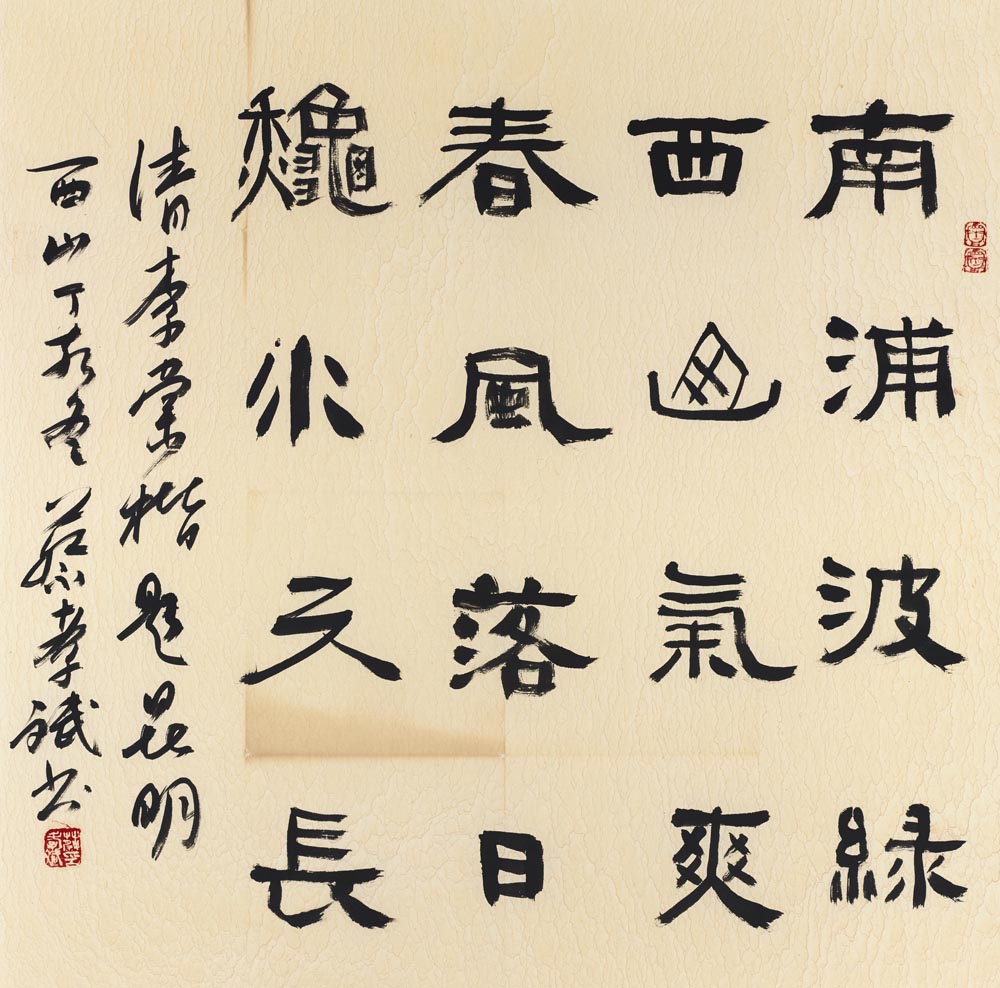 南浦波綠
西山氣爽
春風落日
龝水天長
清李棠楷題昆明
西山丁酉冬蔡孝斌书